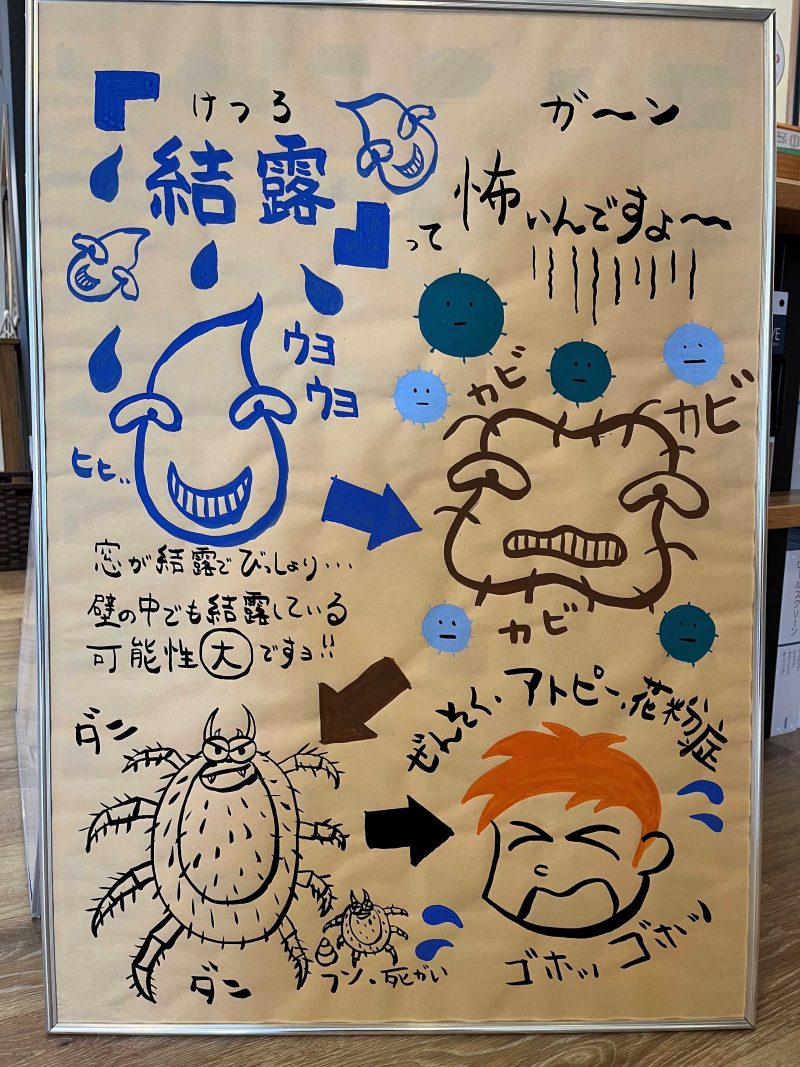 けつろ
『結露』って
ガ〜ン
怖いんですよ〜
ウヨ
ウヨ
ヒヒ゛..
カビ
カビ
カビ
窓が結露でびっしょり…
壁の中でも結露している
可能性大ですョ!!
ぜんそく、アトピー、花粉症
ダン
ダン
フン、死がい
ゴホッ ゴホッ